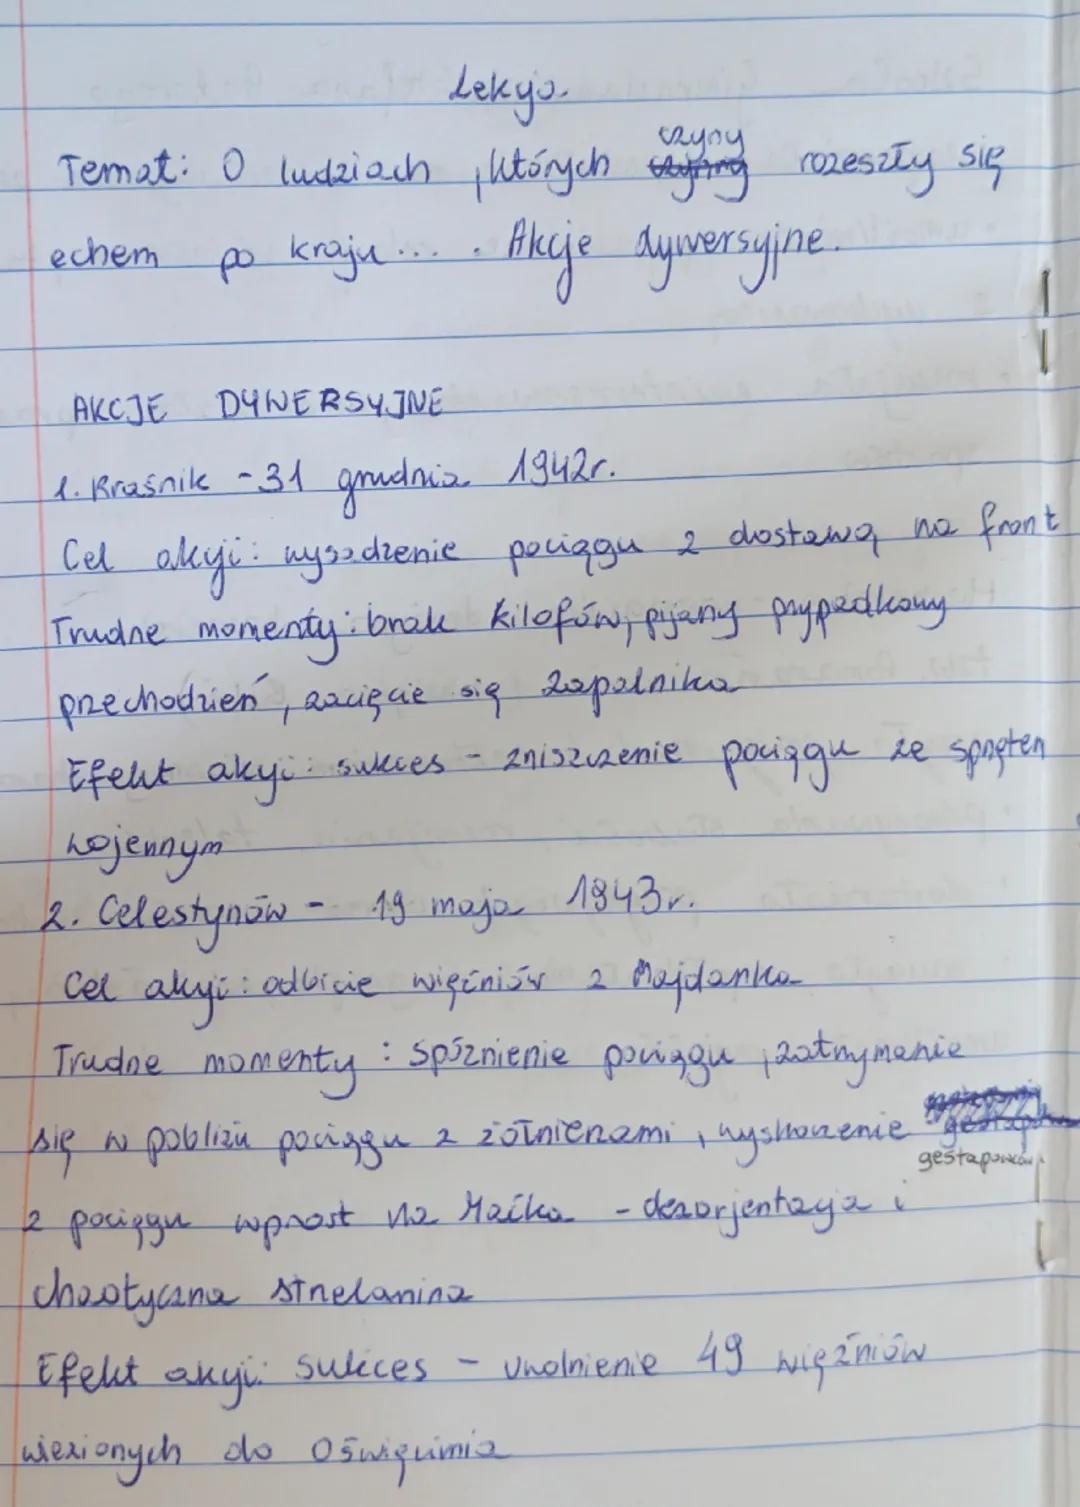 Lekcja.
Temat: O ludziach, których czyny rozeszły się
echem po kraju... . Akcje dywersyjne.
AKCJE DYWERSYJNE
1. Kraśnik - 31 grudnia 1942r.
Cel akcji: wysadzenie pociągu z dostawą na front
Trudne momenty: brak kilofów, pijany przypadkowy
przechodzień, zacięcie się zapalnika
Efekt akcji: sukces - zniszczenie pociągu ze sprzętem
wojennym
2. Celestynów - 19 maja 1943r.
Cel akcji: odbicie więźniów z Majdanka
Trudne momenty: spóźnienie pociągu, zatrzymanie
się w pobliżu pociągu z żołnierzami, wyskoczenie
gestapowców
z pociągu wprost na Maćka - dezorjentacja i
chaotyczna strzelanina
Efekt akcji: sukces - uwolnienie 49 więźniów
wiezionych do Oświęcimia